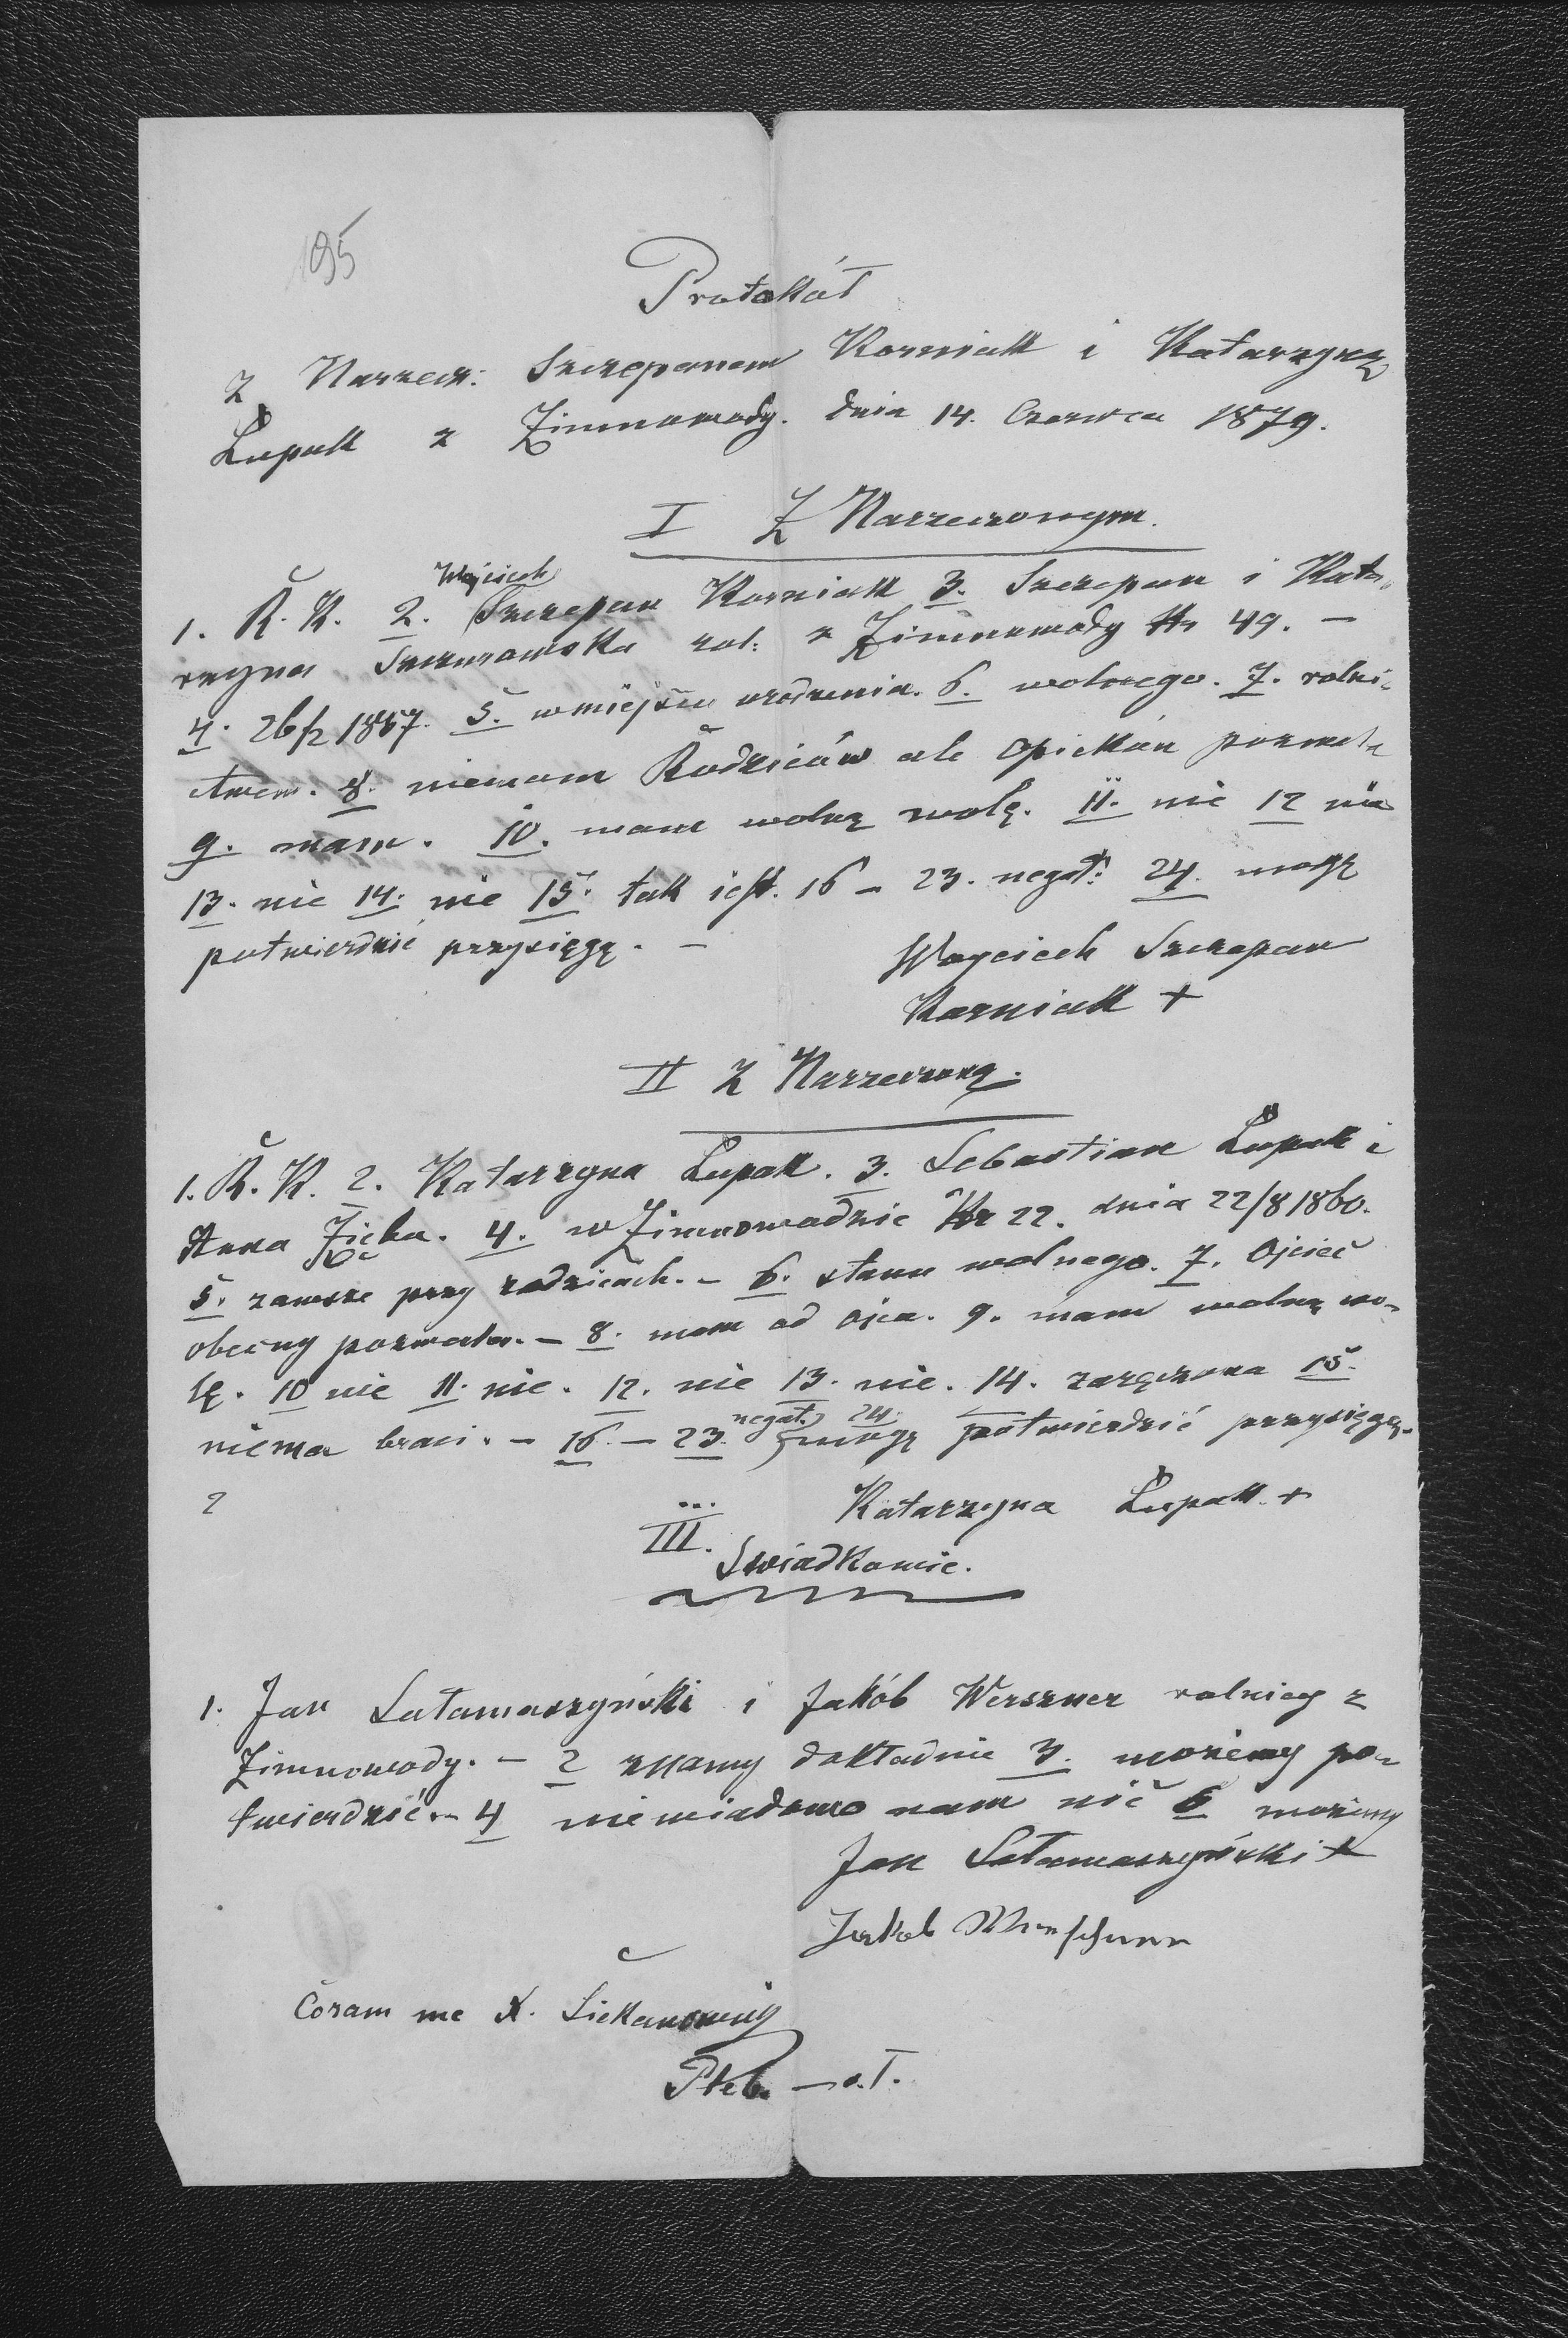 195
Protokół
z Narzecz: Szczepanem Korniakk i Katarzyną
Łupakk z Zimnowody. dnia 14. Czerwca 1879.
I Z Narzeczonym.
Wojciech
1. R. K. 2. Szczepan Korniakk 3. Szczepan i Kata-
rzyna Szczurowska rol: z Zimnowody Nr 49. —
4. 26/12 1857. 5. w miejscu urodzenia. 6. wolnego. 7. rolni-
ctwem. 8. niemam Rodziców ale opiekun pozwala
9. mam. 10. mam wolną wolę. 11. nie 12 nie
13. nie 14. nie 15. tak jest. 16 – 23. negat: 24. mogę
potwierdzić przysięgę. —
Wojciech Szczepan
Korniakk +
II Z Narzeczoną.
1. R. K. 2. Katarzyna Łupakk. 3. Sebastian Łupakk i
Anna Zięba. 4. w Zimnowodzie Nr 22. dnia 22/8 1860.
5. zawsze przy rodzicach. – 6. stanu wolnego. 7. Ojciec
obecny pozwala. – 8. mam od ojca. 9. mam wolną wo-
lę. 10 nie 11. nie. 12. nie 13. nie. 14. zaręczona 15.
niema braci. – 16. – 23. negat. 24. mogę potwierdzić przysięgę.
Katarzyna Łupakk. +
III.
Swiadkowie.
1. Jan Sałamaszyński i Jakób Werszner rolnicy z
Zimnowody. – 2 znamy dokładnie 3. możemy po-
twierdzić – 4 niewiadomo nam nic 5 możemy
Jan Sałamaszyński +
Jakob
Coram me X. Siekanowicz